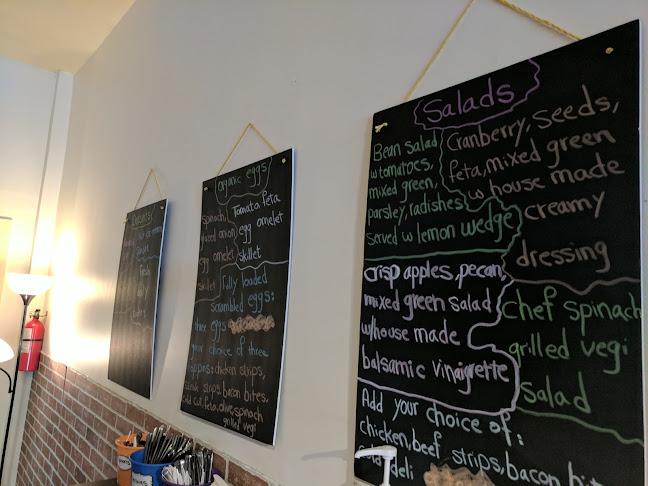 Salads
Bean salad
w tomatoes,
mixed green,
parsley, radishes
served w lemon wedge
Cranberry, seeds,
feta, mixed green
w house made
creamy
dressing
crisp apples, pecan,
mixed green salad
w/house made
balsamic vinaigrette
chef spinach
grilled vegi
salad
Add your choice of:
chicken, beef strips, bacon bit
deli
Organic eggs
spinach,
onion
egg omelet
skillet
Tomato, feta
egg omelet
skillet
Fully loaded
scrambled eggs:
three eggs
your choice of three
chicken strips,
strips, bacon bites,
cold cut, feta, olive, spinach
grilled vegi
fresh
daily